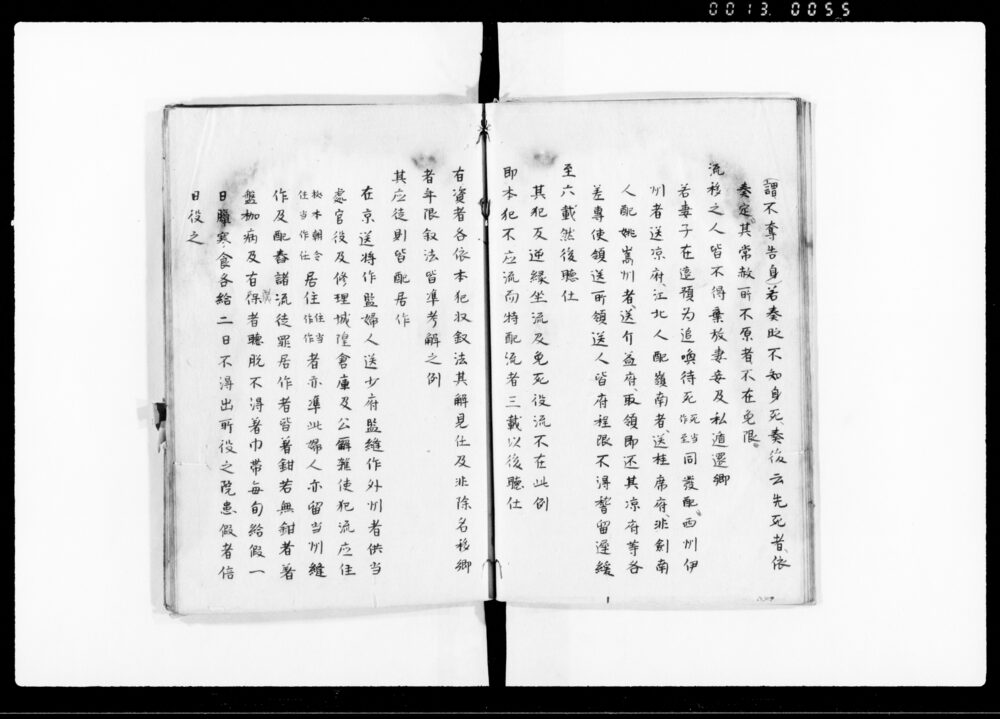 0013 0055
謂不奪告身若奏時不知身死奏後云先死者依
奏定其常赦所不原者不在免限
流移之人皆不得棄放妻妾及私遁還鄉
若妻子在遠預为追喚待死死当作至同發配西州伊
州者送凉府江北人配嶺南者送桂廣府非剑南
人配姚嶲州者送付益府取領即还其凉府等各
差專使領送所領送人皆府程限不得稽留遲緩
至六載然後聽仕
其犯反逆緣坐流及免死役流不在此例
即本犯不应流而特配流者三載以後聽仕
有資者各依本犯収叙法其解見仕及非除名移鄉
者年限叙法皆準考解之例
其应徒則皆配居作
在京送将作监婦人送少府監縫作外州者供当
處官役及修理城隍倉庫及公廨雜使犯流应住
居住住当作作者亦準此婦人亦留当州縫
作及配舂諸流徒罪居作者皆著鉗若無鉗者著
盤枷病及有保者聽脱不得著巾帶每旬給假一
日臘寒食各給二日不得出所役之院患假者倍
日役之